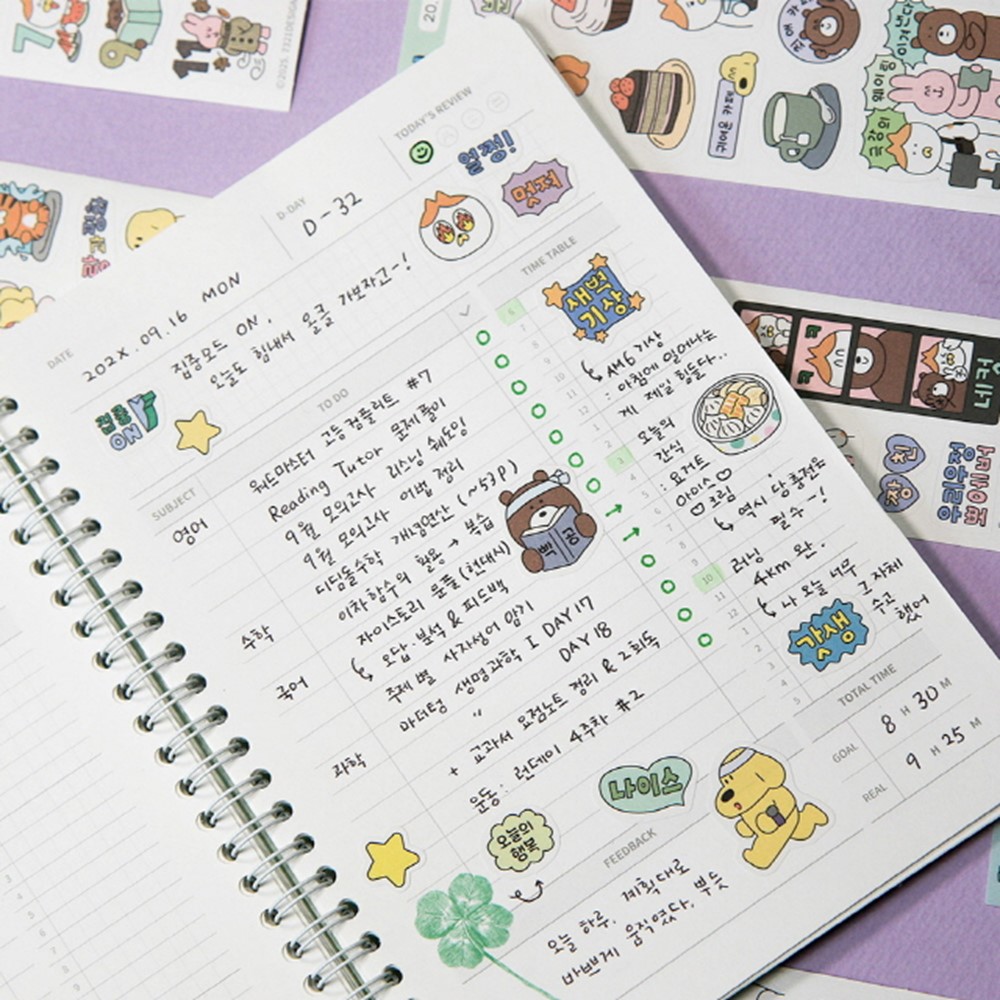 ©2025. 7321DESIGN
TODAY'S REVIEW
열쩡!
멋져
D-DAY
D-32
DATE
202X. 09. 16 MON
집중모드 ON,
오늘도 힘내서 오클 가보자고~!
집중
ON
TO DO
TIME TABLE
새벽
기상
SUBJECT
영어
워드마스터 고등 컴플리트 #7
Reading Tutor 문제풀이
9월 모의고사 리스닝 쉐도잉
9월 모의고사 어법 정리
수학
디딤돌수학 개념연산 (~53p)
이차함수의 활용 → 복습
국어
자이스토리 문풀 (현대시)
오답 분석 & 피드백
주제별 사자성어 암기
과학
마더텅 생명과학 I DAY 17
" DAY 18
+ 교과서 요점노트 정리 & 2회독
운동: 런데이 4주차 #2
빡공
AM6 기상
: 아침에 일어나는
게 제일 힘들다..
오늘의
간식
: 요거트
아이스
크림
역시 당 충전은
필수~!
러닝
4km 완.
나 오늘 너무
그 자체
수고
했어
갓생
TOTAL TIME
GOAL
8 H 30 M
REAL
9 H 25 M
나이스
오늘의
행복
FEEDBACK
오늘 하루, 계획대로
바쁘게 움직였다, 뿌듯
귀여운 카페
웨이팅
극강의